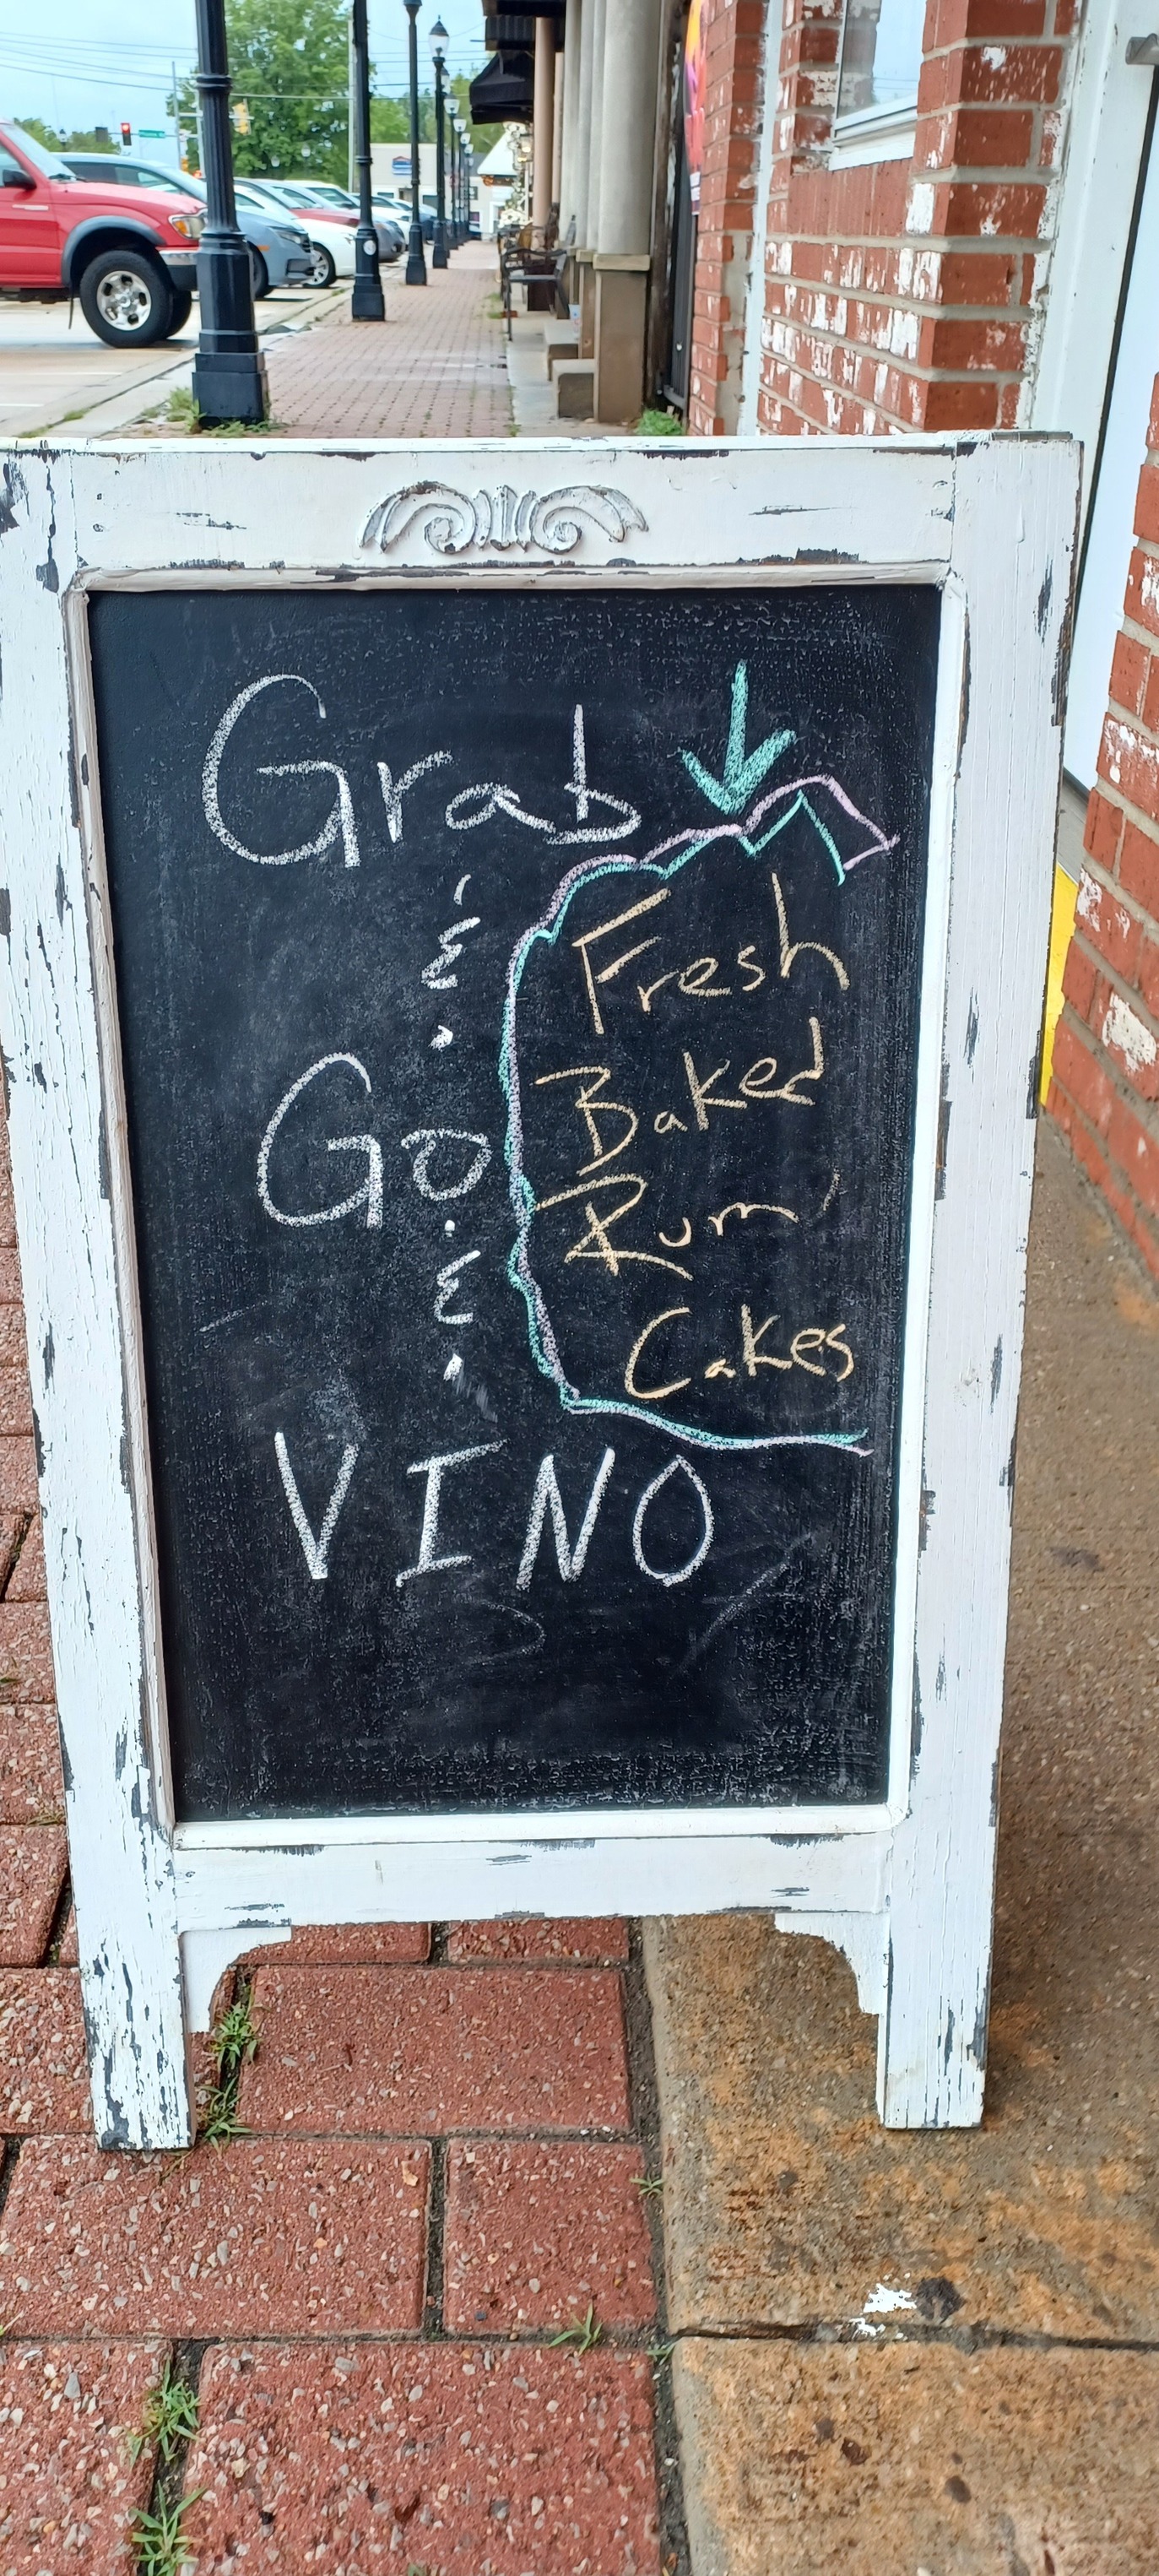 Grab
&
Go
&
VINO
Fresh
Baked
Rum
Cakes